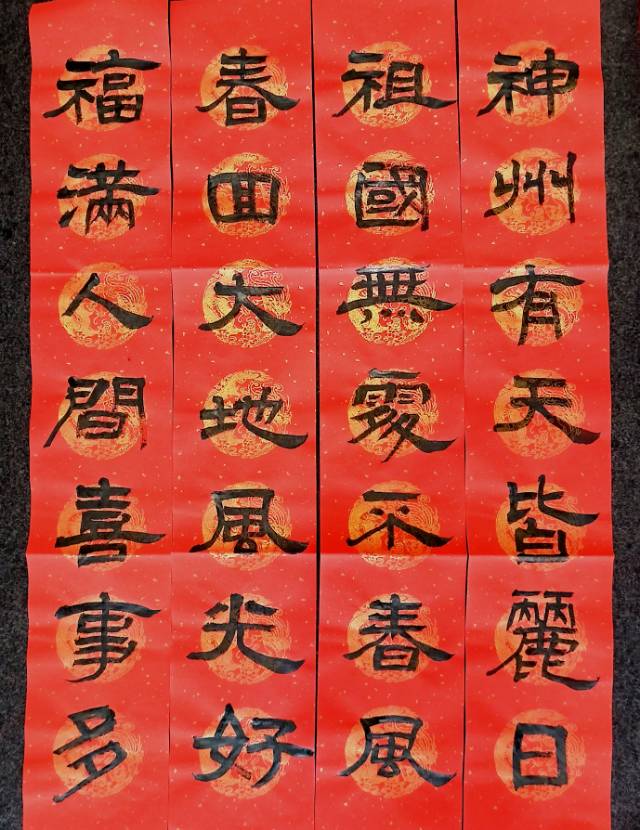 神州有天皆麗日
祖國無處不春風
春回大地風光好
福滿人間喜事多